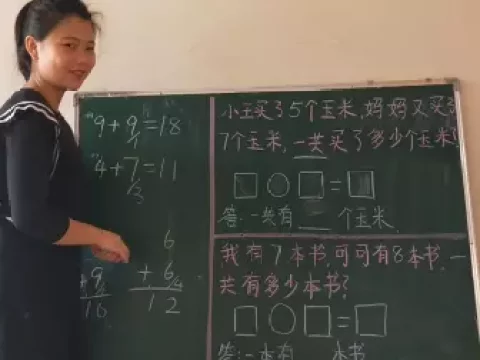 9+9=18
1
4+7=11
3
6
+6
4
12
9
+9
16
小王买了5个玉米,妈妈又买了
7个玉米,一共买了多少个玉米?
□○□=□
答:一共有___个玉米.
我有7本书,可可有8本书,一
共有多少本书?
□○□=□
答:一本有___本书